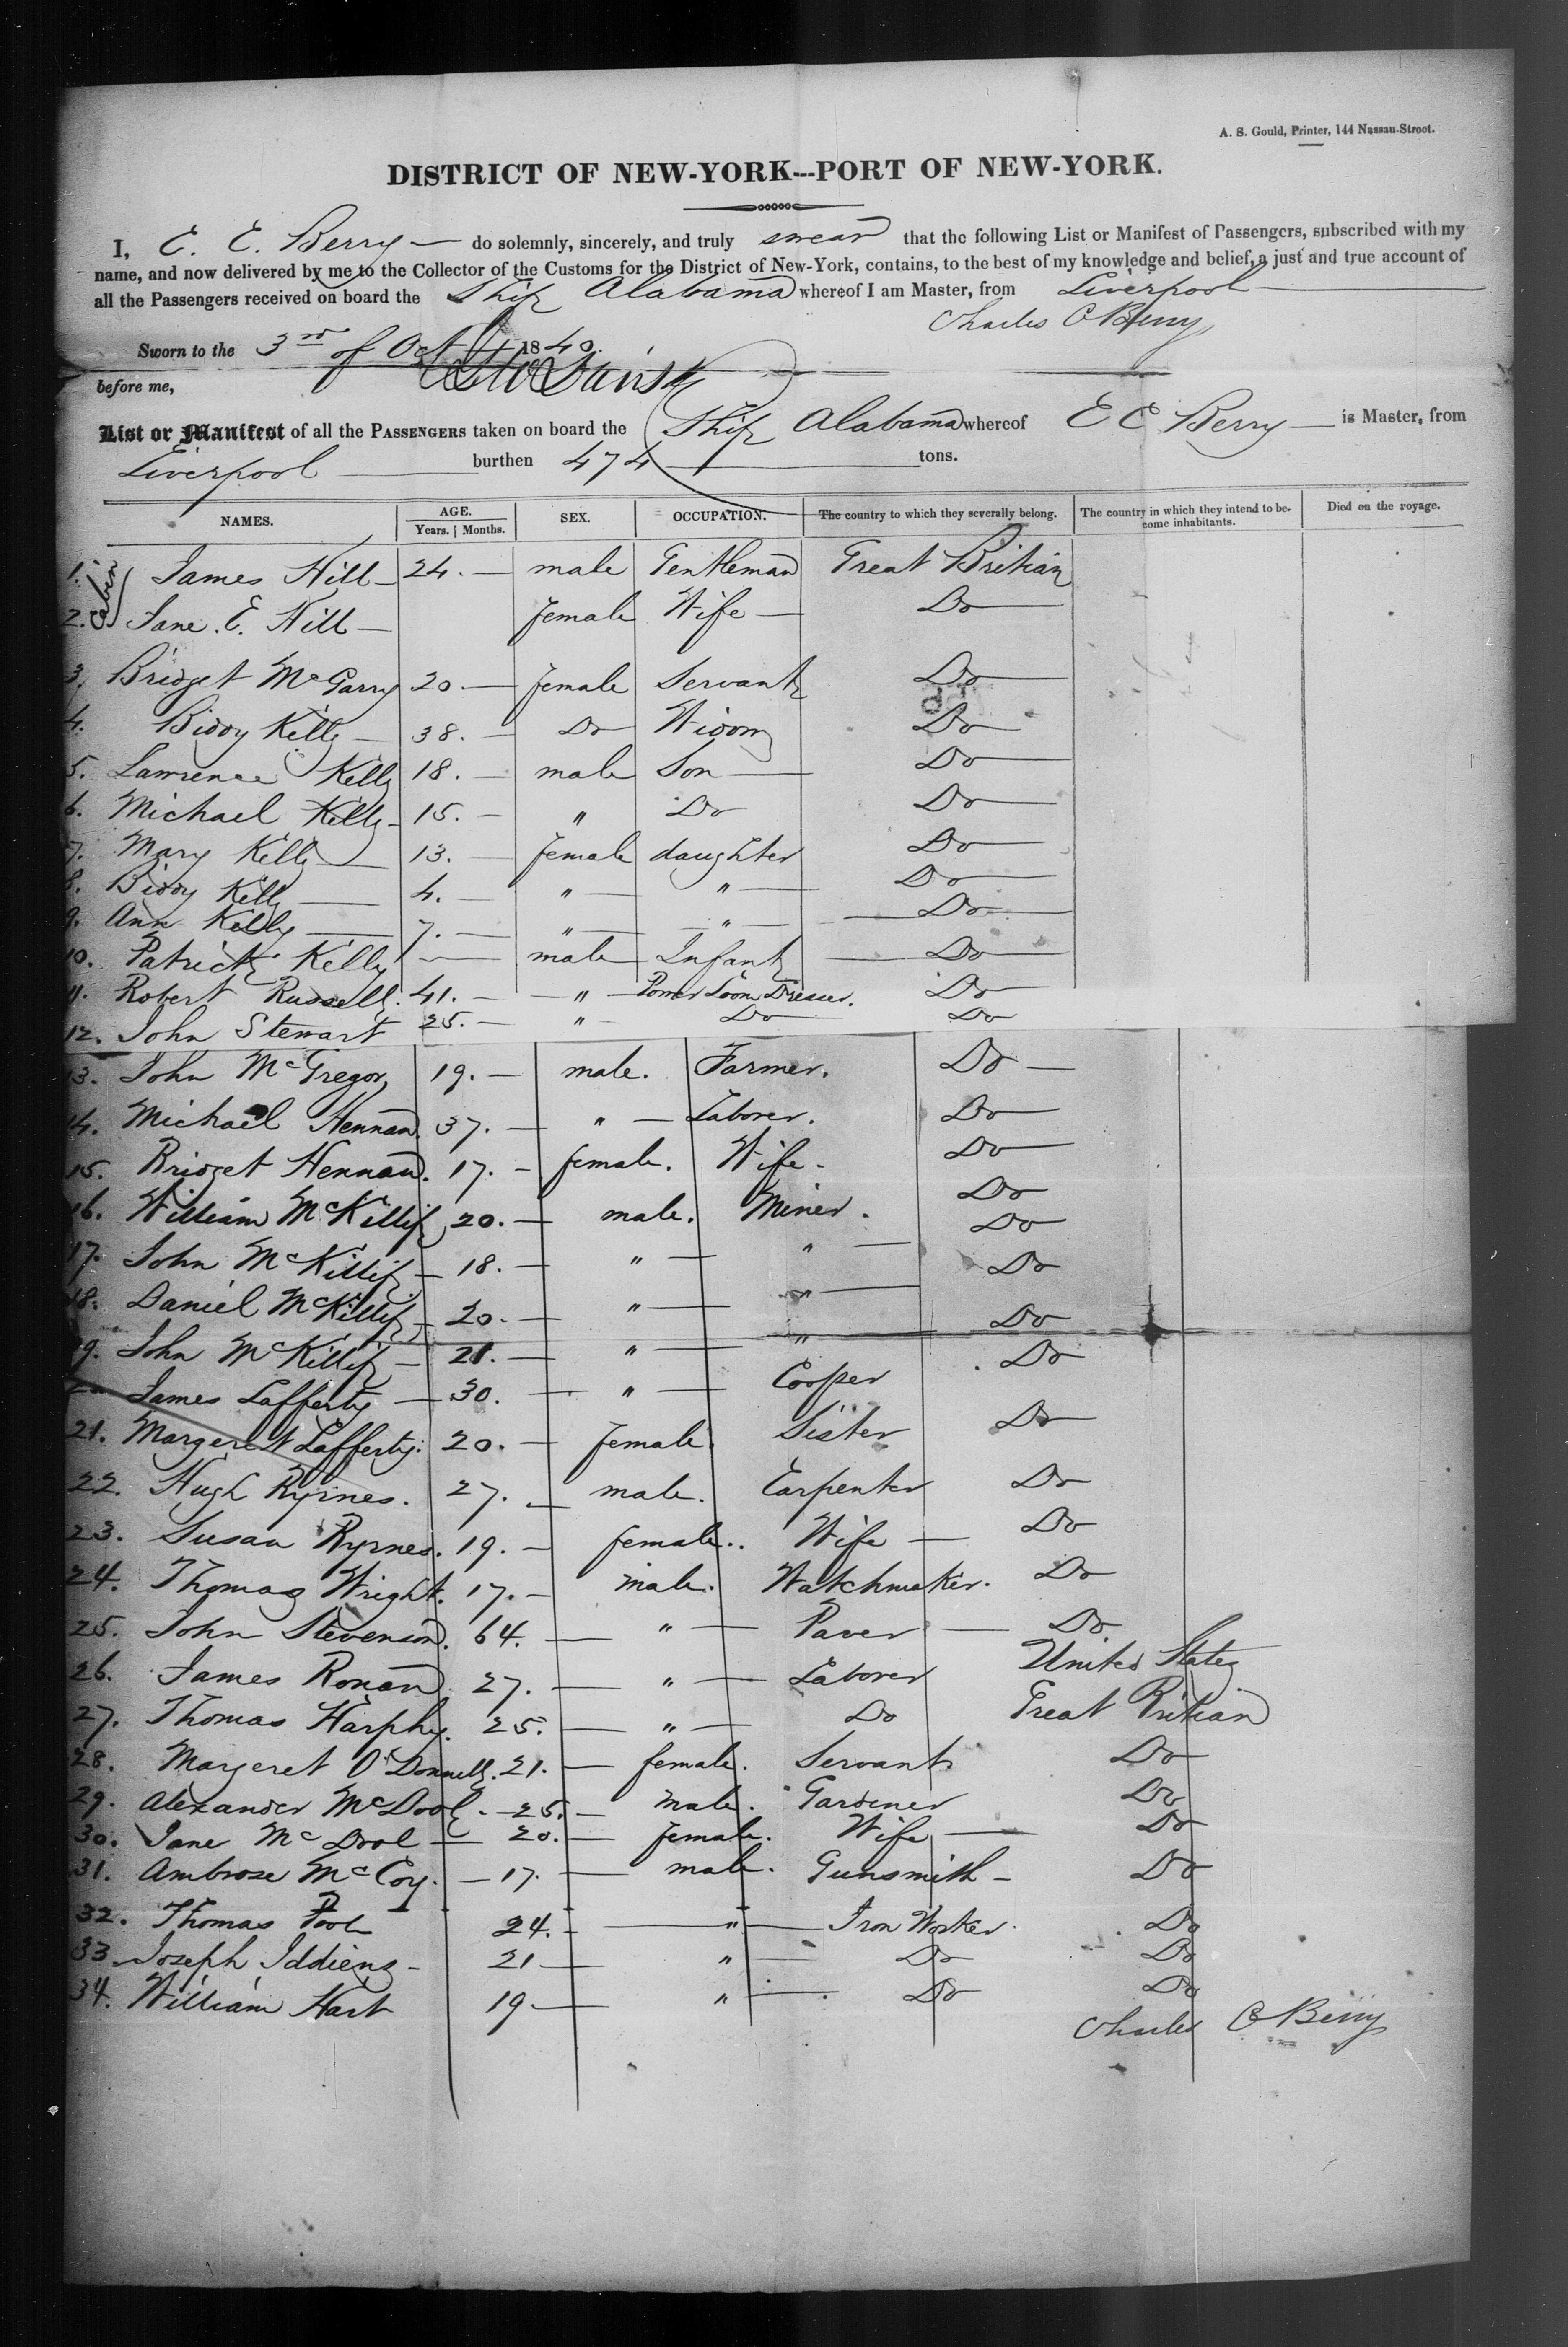 A. S. Gould, Printer, 144 Nassau-Street.
DISTRICT OF NEW-YORK---PORT OF NEW-YORK.
I, E. E. Berry do solemnly, sincerely, and truly swear that the following List or Manifest of Passengers, subscribed with my
name, and now delivered by me to the Collector of the Customs for the District of New-York, contains, to the best of my knowledge and belief, a just and true account of
all the Passengers received on board the Ship Alabama whereof I am Master, from Liverpool
Charles C Berry
Sworn to the 3rd of Oct 1840.
before me,
List or Manifest of all the PASSENGERS taken on board the Ship Alabama whereof E E Berry is Master, from
Liverpool burthen 474 tons.
NAMES. AGE. Years. Months. SEX. OCCUPATION. The country to which they severally belong. The country in which they intend to become inhabitants. Died on the voyage.
Cabin
1. James Hill 24. male Gentleman Great Britian
2. Jane. E. Hill female Wife Do
3. Bridget McGarry 20. female Servant Do
4. Biddy Kelly 38. Do Widow Do
5. Lawrence Kelly 18. male Son Do
6. Michael Kelly 15. " Do Do
7. Mary Kelly 13. female daughter Do
8. Biddy Kelly 4. " " Do
9. Ann Kelly 7. " " Do
10. Patrick Kelly male Infant Do
11. Robert Russell. 41. " Power Loom Dresser. Do
12. John Stewart 25. " Do Do
13. John McGregor 19. male. Farmer. Do
14. Michael Hennan 37. " Laborer. Do
15. Bridget Hennan. 17. female. Wife Do
16. William McKillip 20. male. Miner. Do
17. John McKillip 18. " " Do
18. Daniel McKillip 20. " " Do
19. John McKillip 21. " " Do
James Lafferty 30. " Cooper Do
21. Margeret Lafferty. 20. female. Sister Do
22. Hugh Byrnes. 27. male. Carpenter Do
23. Susan Byrnes. 19. female. Wife Do
24. Thomas Wright. 17. male. Watchmaker. Do
25. John Stevenson. 64. " Paver Do
26. James Ronan 27. " Laborer United States
27. Thomas Harphy. 25. " Do Great Britian
28. Margeret O'Donnell. 21. female. Servant Do
29. Alexander McDool 25. male. Gardener Do
30. Jane McDool 20. female. Wife Do
31. Ambrose McCoy. 17. male. Gunsmith Do
32. Thomas Pool 24. " Iron Worker. Do
33. Joseph Iddiens 21 " Do Do
34. William Hart 19 " Do Do
Charles C Berry